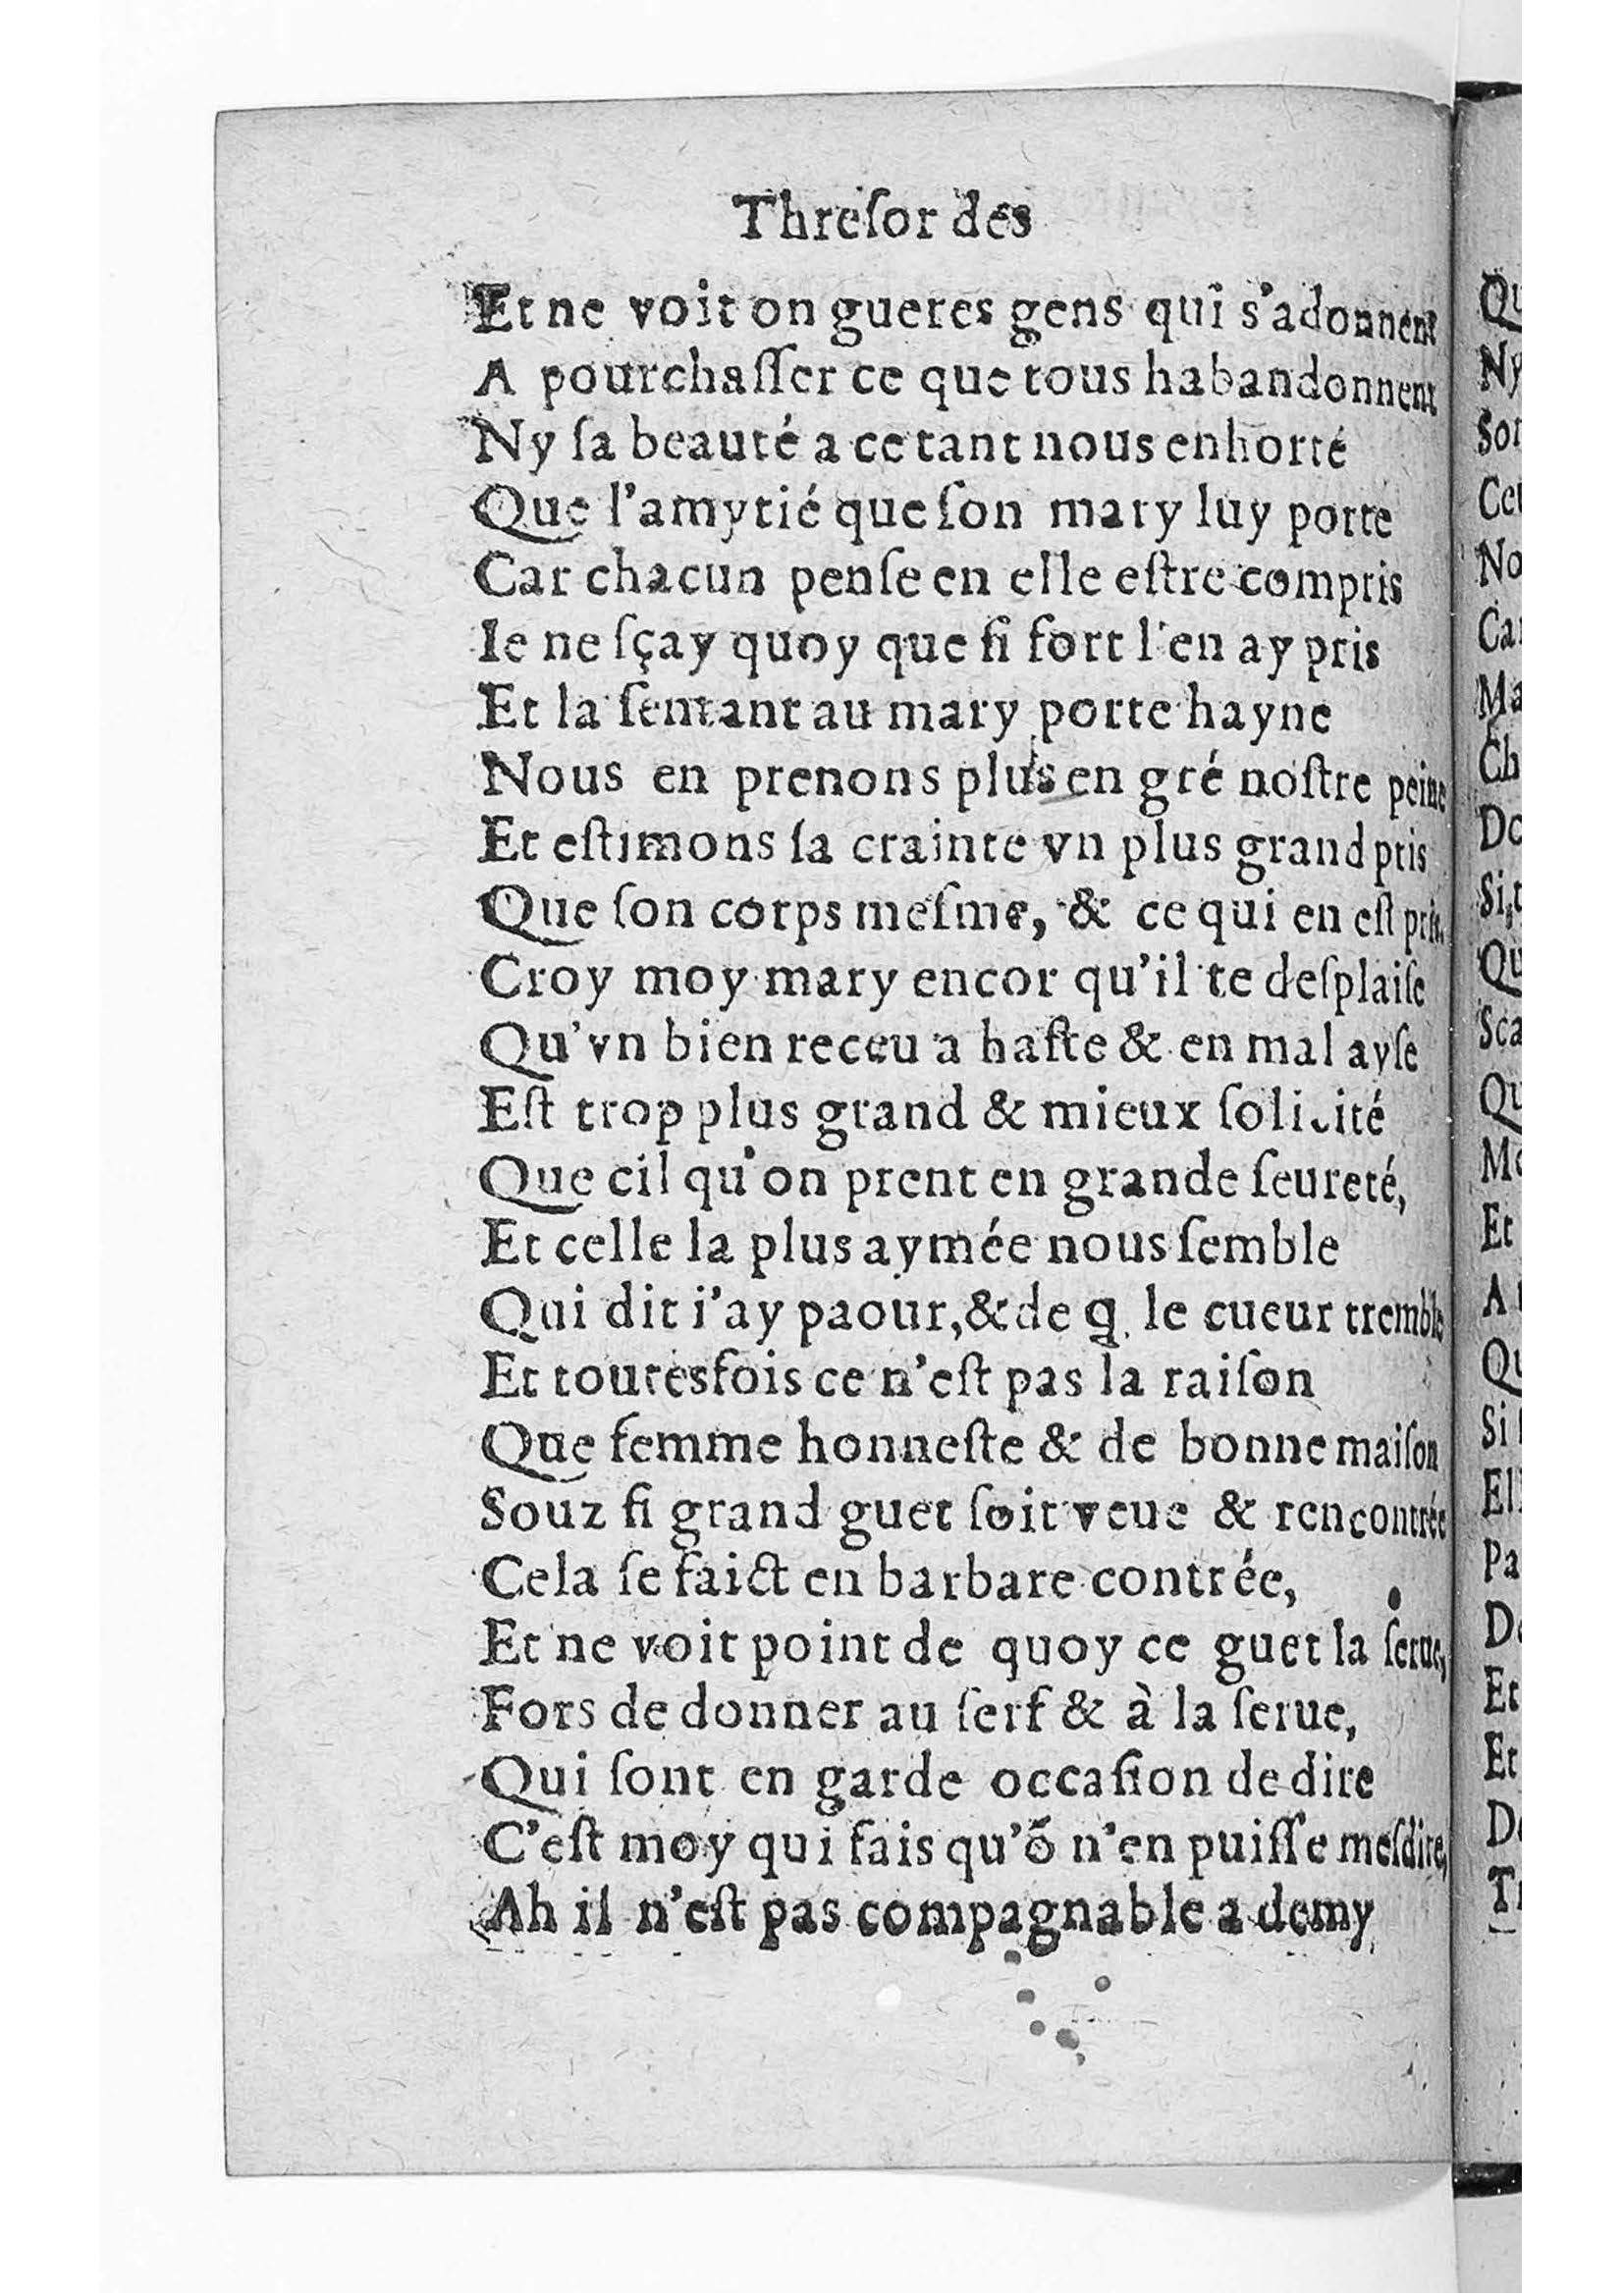 Threſor des
Et ne voit on gueres gens qui s'adonnent
A pourchaſſer ce que tous habandonnent
Ny ſa beauté a ce tant nous enhorté
Que l'amytié que ſon mary luy porte
Car chacun penſe en elle eſtre compris
Ie ne ſçay quoy que ſi fort l'en ay pris
Et la ſentant au mary porte hayne
Nous en prenons plus en gré noſtre peine
Et eſtimons ſa crainte vn plus grand pris
Que ſon corps meſme, & ce qui en eſt pris.
Croy moy mary encor qu'il te deſplaiſe
Qu'vn bien receu a haſte & en mal ayſe
Eſt trop plus grand & mieux ſolicité
Que cil qu'on prent en grande ſeureté,
Et celle la plus aymée nous ſemble
Qui dit i'ay paour, & de q̃ le cueur tremble
Et toutesfois ce n'eſt pas la raiſon
Que femme honneſte & de bonne maiſon
Souz ſi grand guet ſoit veue & rencontrée
Cela ſe faict en barbare contrée,
Et ne voit point de quoy ce guet la ſerue,
Fors de donner au ſerf & à la ſerue,
Qui ſont en garde occaſion de dire
C'eſt moy qui fais qu'õ n'en puiſſe meſdire,
Ah il n'eſt pas compagnable a demy
Qu
Ny
Ma
Ch
Et
A
Qu
Si
Et
Et